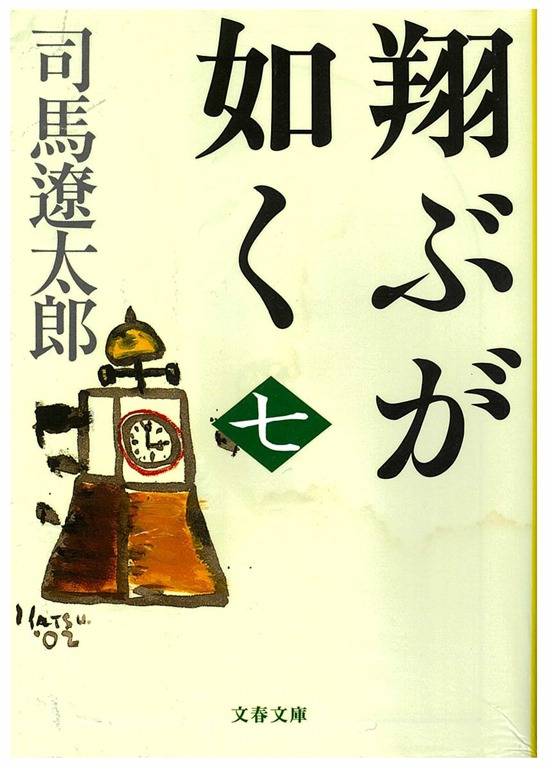 翔ぶが
如く
七
司馬遼太郎
MATSU.
'02
文春文庫